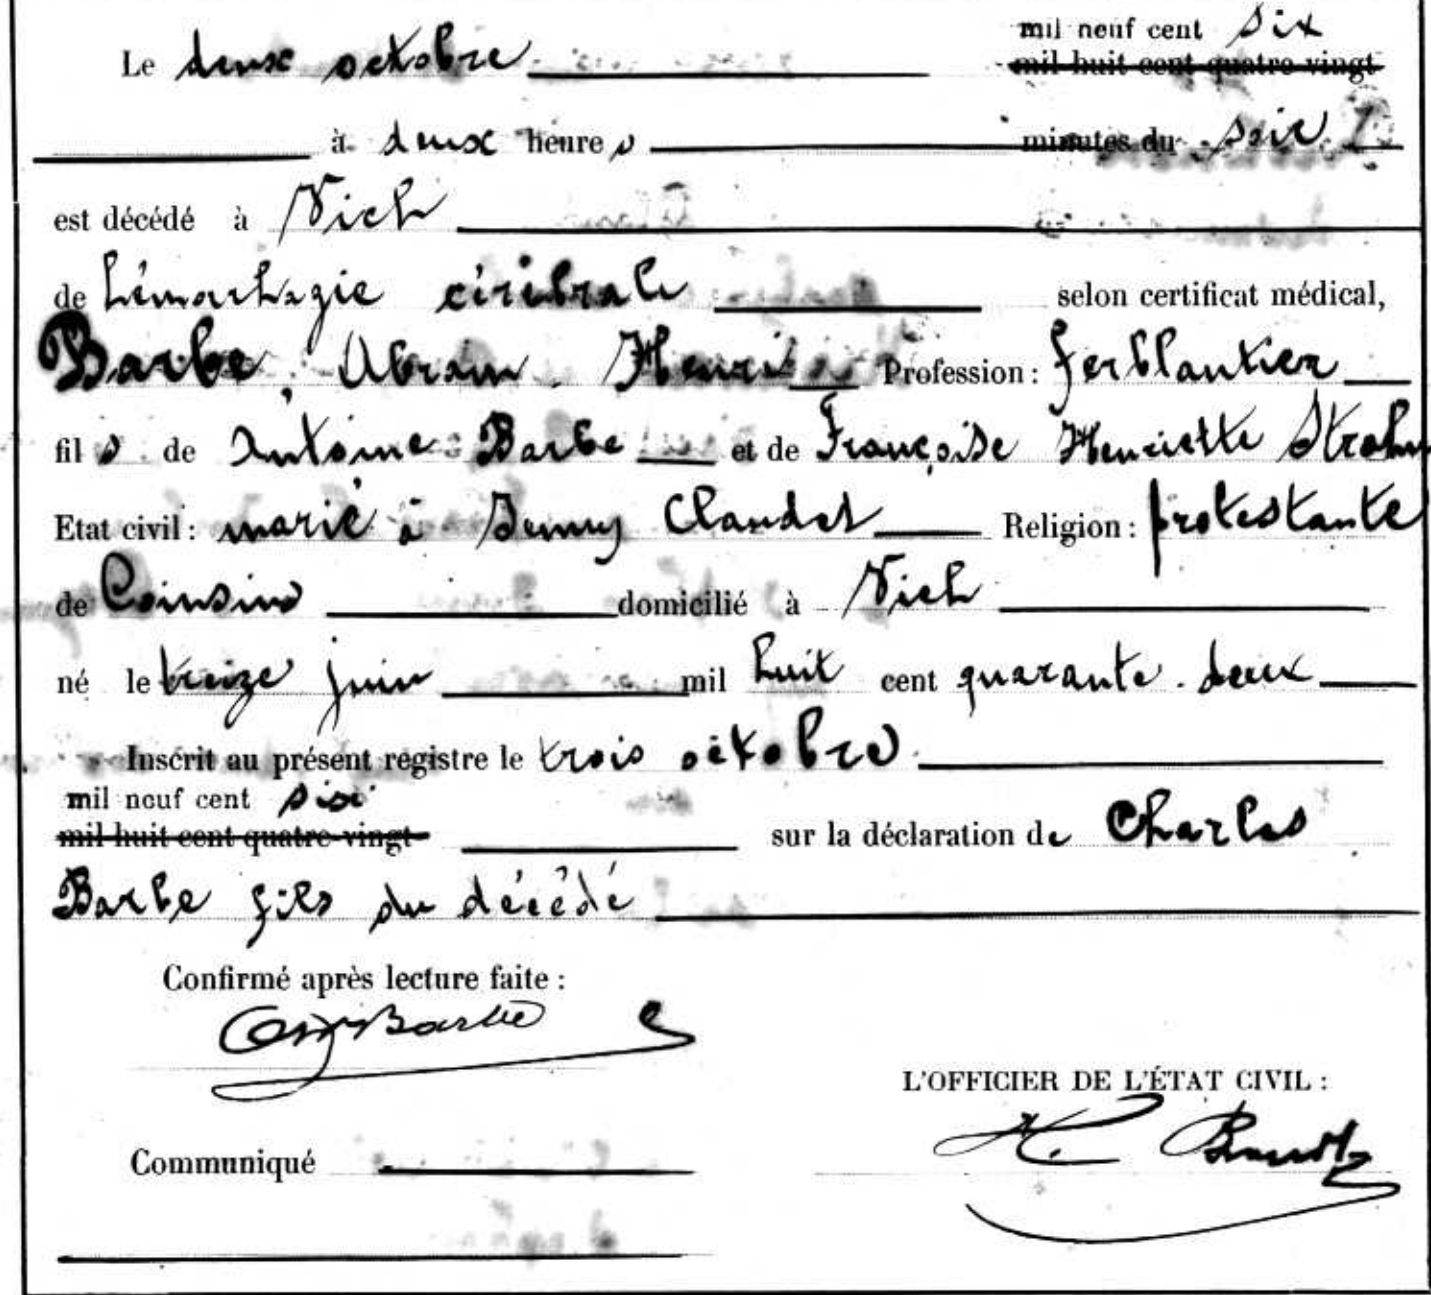 mil neuf cent six
Le deux octobre mil huit cent quatre-vingt
à deux heures minutes du soir
est décédé à Vich
de hémorhagie cérébrale selon certificat médical,
Barbe, Abram Henri Profession: ferblantier
fils de Antoine Barbe et de Françoise Henriette Strohm
Etat civil: marié à Jenny Claudet Religion: protestante
de Coinsins domicilié à Vich
né le treize juin mil huit cent quarante-deux
Inscrit au présent registre le trois octobre
mil neuf cent six
mil huit cent quatre-vingt sur la déclaration de Charles
Barbe fils du décédé
Confirmé après lecture faite:
Barbe
L'OFFICIER DE L'ÉTAT CIVIL:
Communiqué